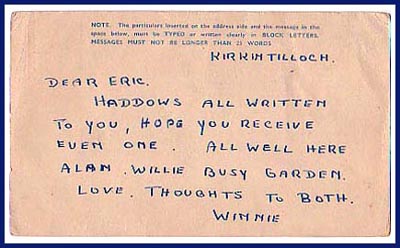 NOTE. The particulars inserted on the address side and the message in the
space below, must be TYPED or written clearly in BLOCK LETTERS.
MESSAGES MUST NOT BE LONGER THAN 25 WORDS
KIRKINTILLOCH.
DEAR ERIC.
HADDOWS ALL WRITTEN
TO YOU, HOPE YOU RECEIVE
EVEN ONE. ALL WELL HERE
ALAN. WILLIE BUSY GARDEN.
LOVE. THOUGHTS TO BOTH.
WINNIE